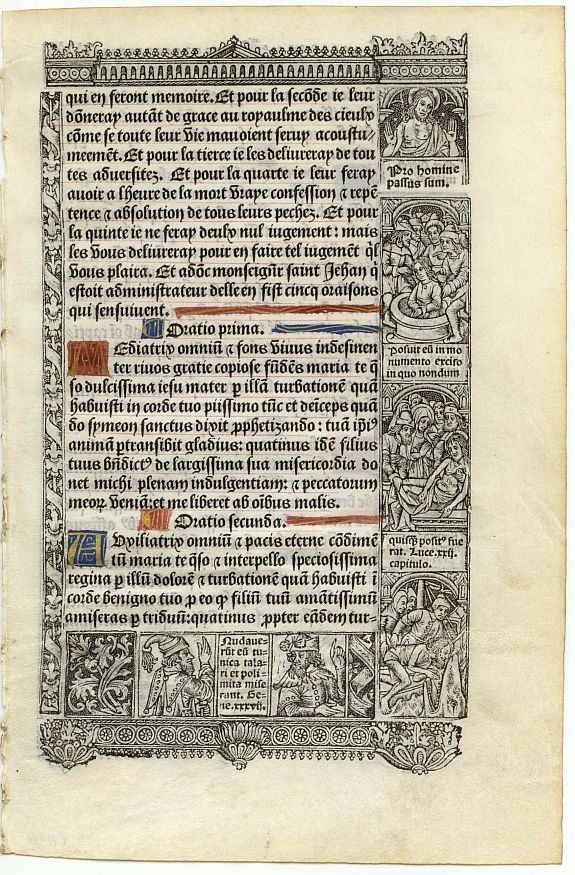 qui en feront memoire. Et pour la secōde ie leur
dōneray autāt de grace au royaulme des cieulx
cōme se toute leur vie mauoient seruy acoustu/
meemēt. Et pour la tierce ie les deliureray de tou
tes aduersitez. Et pour la quarte ie leur feray
auoir a lheure de la mort vraye confession ⁊ repē
tence ⁊ absolution de tous leurs pechez. Et pour
la quinte ie ne feray deulx nul iugement: mais
les vous deliureray pour en faire tel iugemēt q̄l
vous plaira. Et adōc monseignr̄ saint Jehan q̄
estoit administrateur delle en fist cincq oraisons
qui sensuiuent.
Oratio prima.
MEdiatrix omniū ⁊ fons viuus indesinen
ter riuos gratie copiose fundēs maria te q̄
so dulcissima iesu mater ꝑ illā turbationē quā
habuisti in corde tuo piissimo tūc et deīceps quā
do symeon sanctus dixit ꝓphetizando: tuā ip̄iꝰ
animā ꝑtransibit gladius: quatinus idē filius
tuus bn̄dictꝰ de largissima sua misericordia do
net michi plenam indulgentiam: ⁊ peccatorum
meoꝝ veniā: et me liberet ab oībus malis.
Oratio secunda.
AUxiliatrix omniū ⁊ pacis eterne cōdimē
tū maria te q̄so ⁊ interpello speciosissima
regina ꝑ illū dolorē ⁊ turbationē quā habuisti ī
corde benigno tuo ꝑ eo ꝙ filiū tuū amātissimū
amiseras ꝑ triduū: quatinus ꝓpter eādem tur-
Pro homine
passus sum.
Posuit eū in mo
numento exciso
in quo nondum
quisq̄ positꝰ fue
rat. Luce. xxij.
capitulo.
Nudaue-
rūt eū tu-
nica tala-
ri et poli-
mita mise
rant. Ge-
ne. xxxvij.